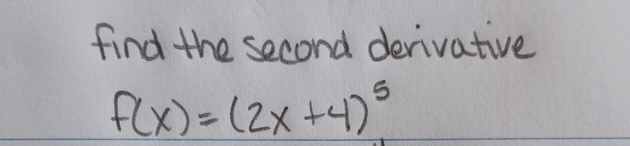 find the second derivative
f(x) = (2x + 4)⁵